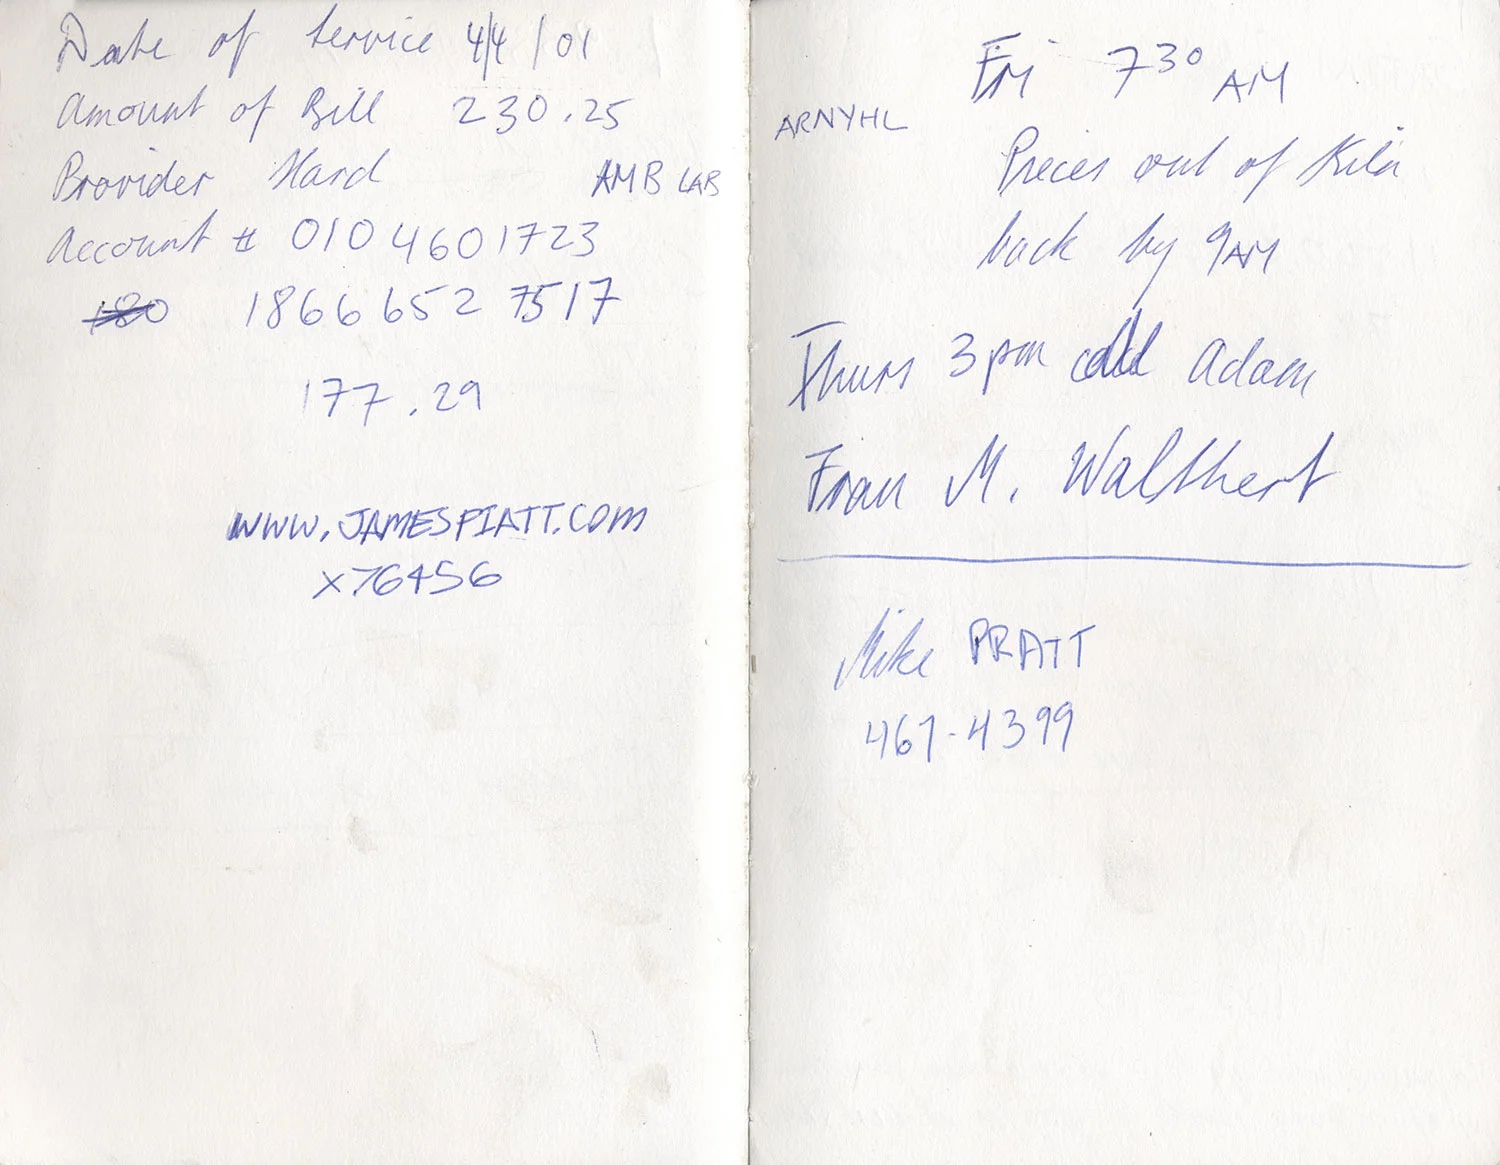 Date of Service 4/4/01
Amount of Bill 230.25
Provider Hard AMB LAB
Account # 010 4601723
1866 652 7517
177.29
WWW.JAMESPIATT.COM
x76456
Fri 7 30 AM
ARNYHL
Pieces out of Kiln
back by 9AM
Thurs 3pm call Adam
Fran M. Walthert
Mike PRATT
467-4399